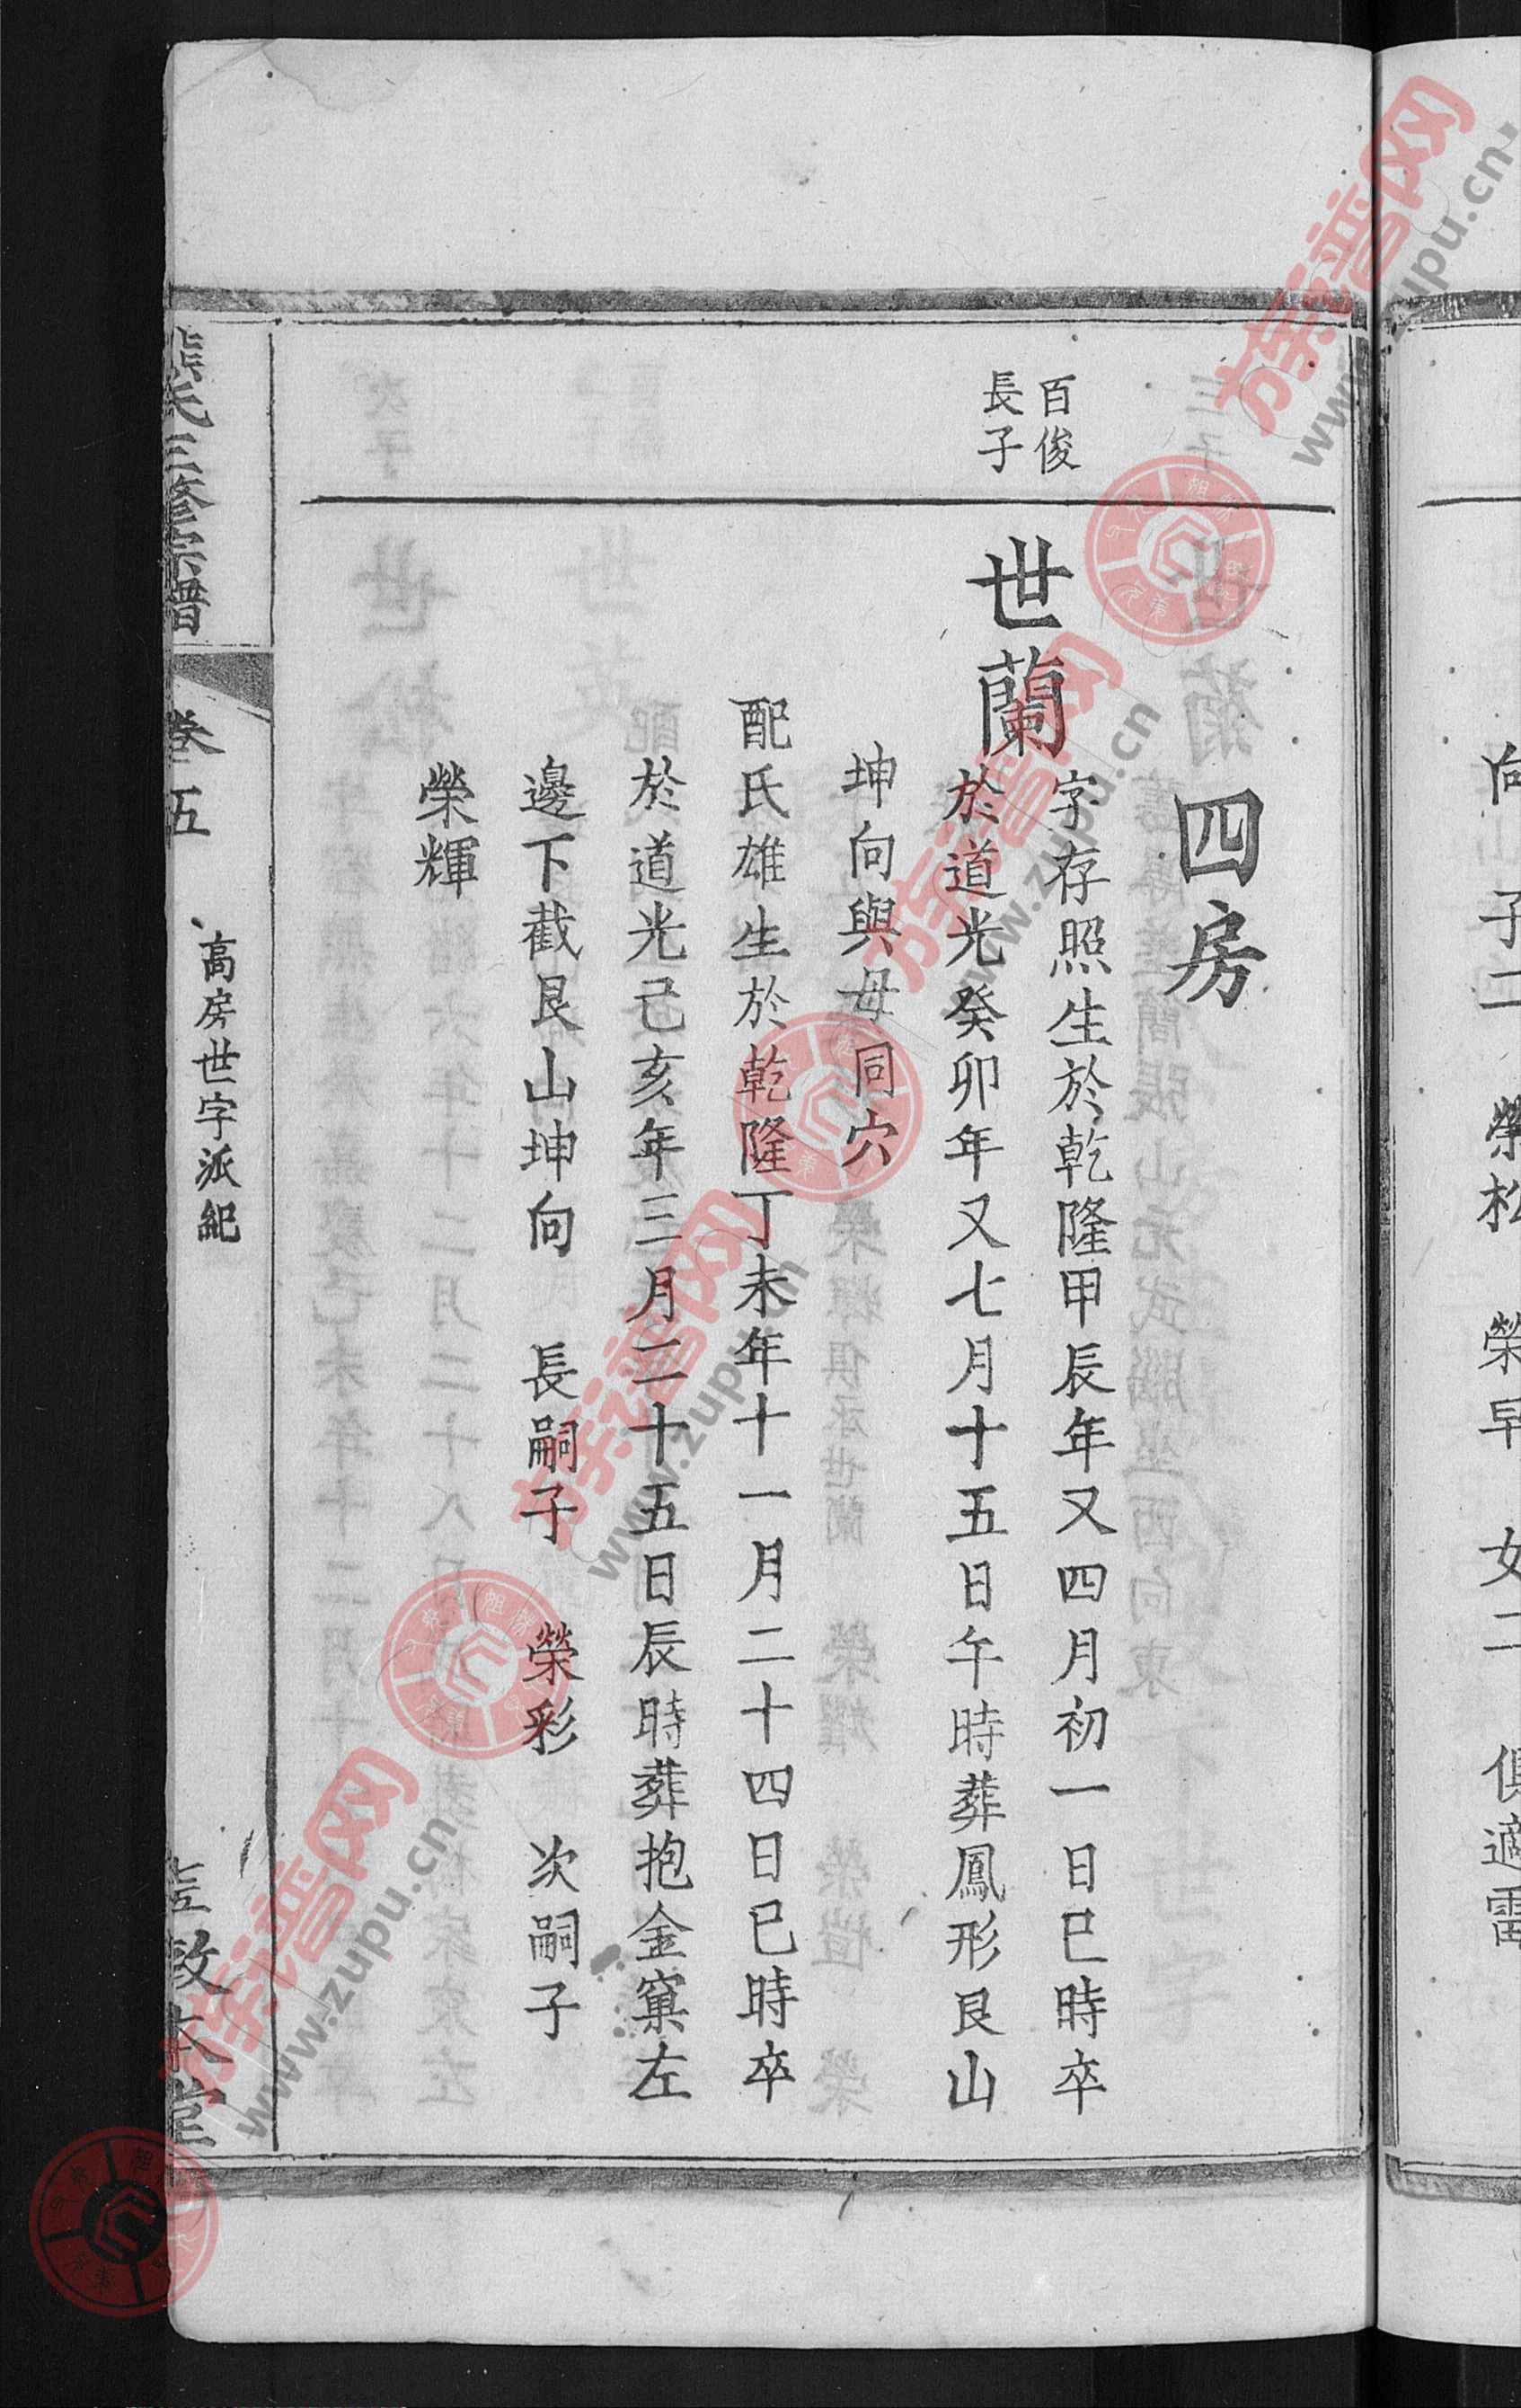 四房
百俊
長子
世蘭
字存照生於乾隆甲辰年又四月初一日巳時卒
於道光癸卯年又七月十五日午時葬鳳形艮山
坤向與母同穴
配氏雄生於乾隆丁未年十一月二十四日巳時卒
於道光己亥年三月二十五日辰時葬抱金窠左
邊下截艮山坤向 長嗣子 榮彩 次嗣子
榮輝
熊氏三修宗譜
卷五
高房世字派紀
敦本堂
向 子二 榮松 榮早 女二 俱適雷
族譜网
www.zupu.cn
族譜网
www.zupu.cn
族譜网
www.zupu.cn
族譜网
www.zupu.cn